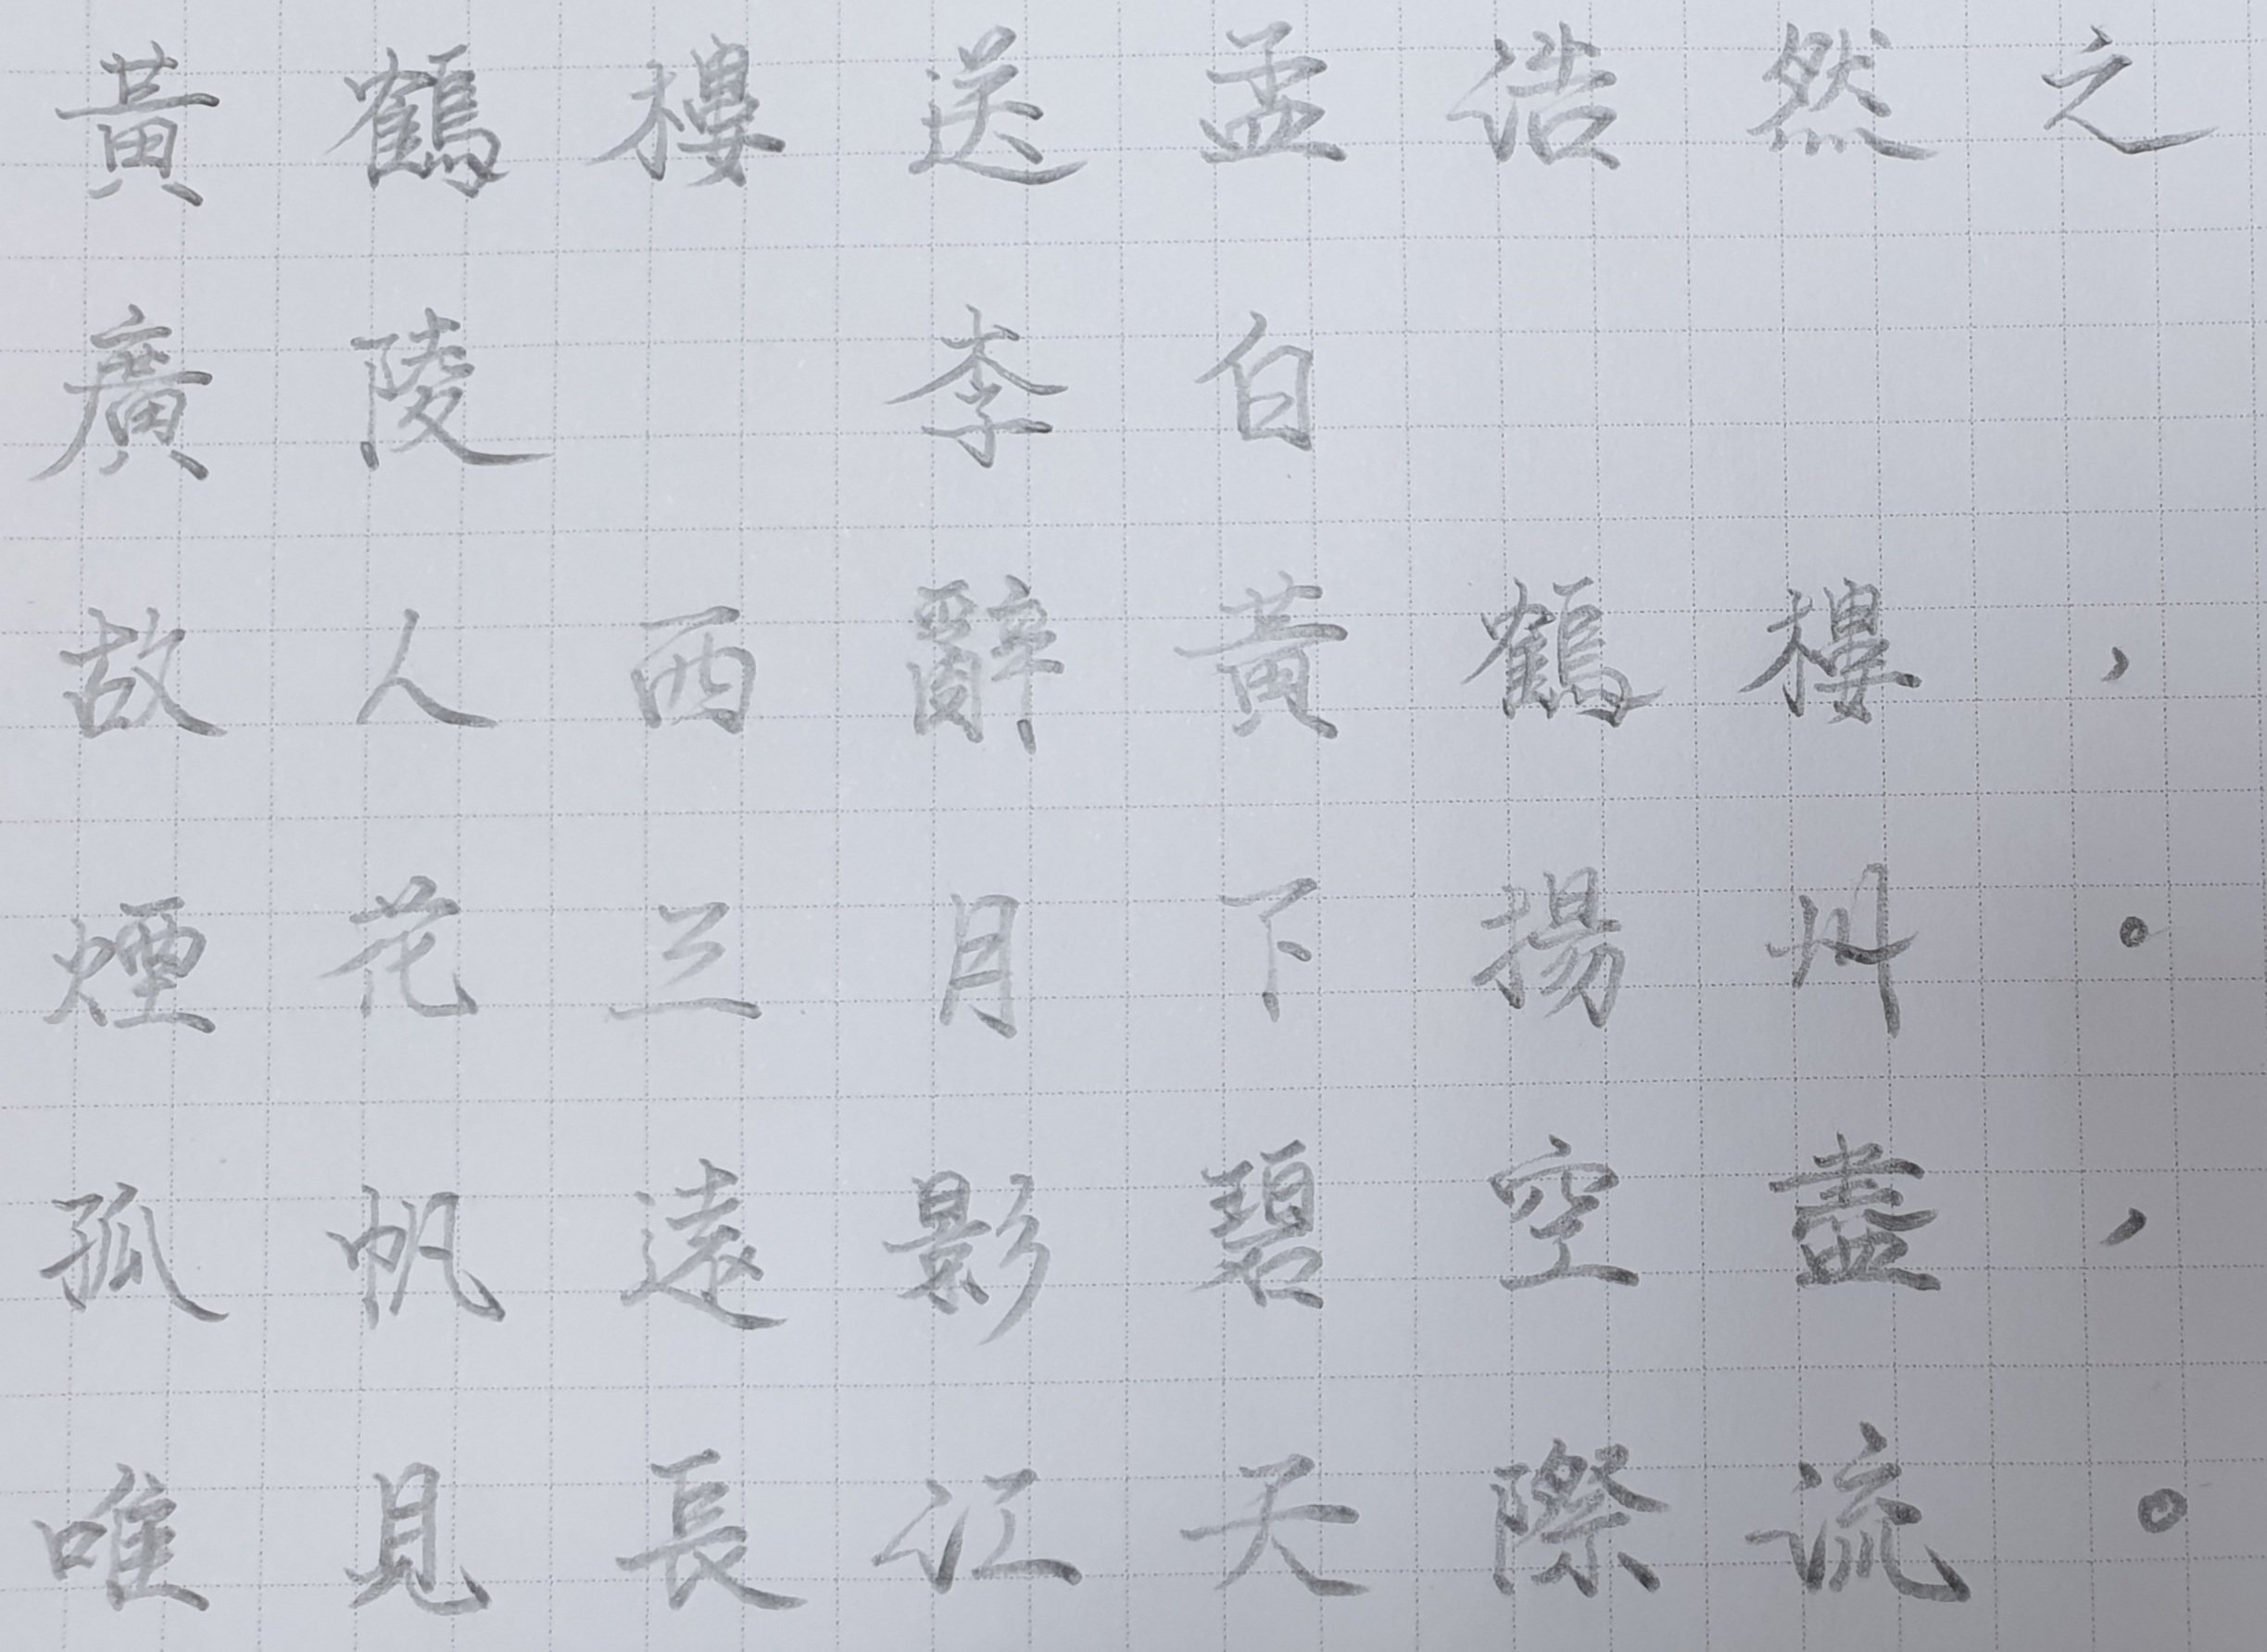 黃鶴樓送孟浩然之
廣陵 李白
故人西辭黃鶴樓，
煙花三月下揚州。
孤帆遠影碧空盡，
唯見長江天際流。